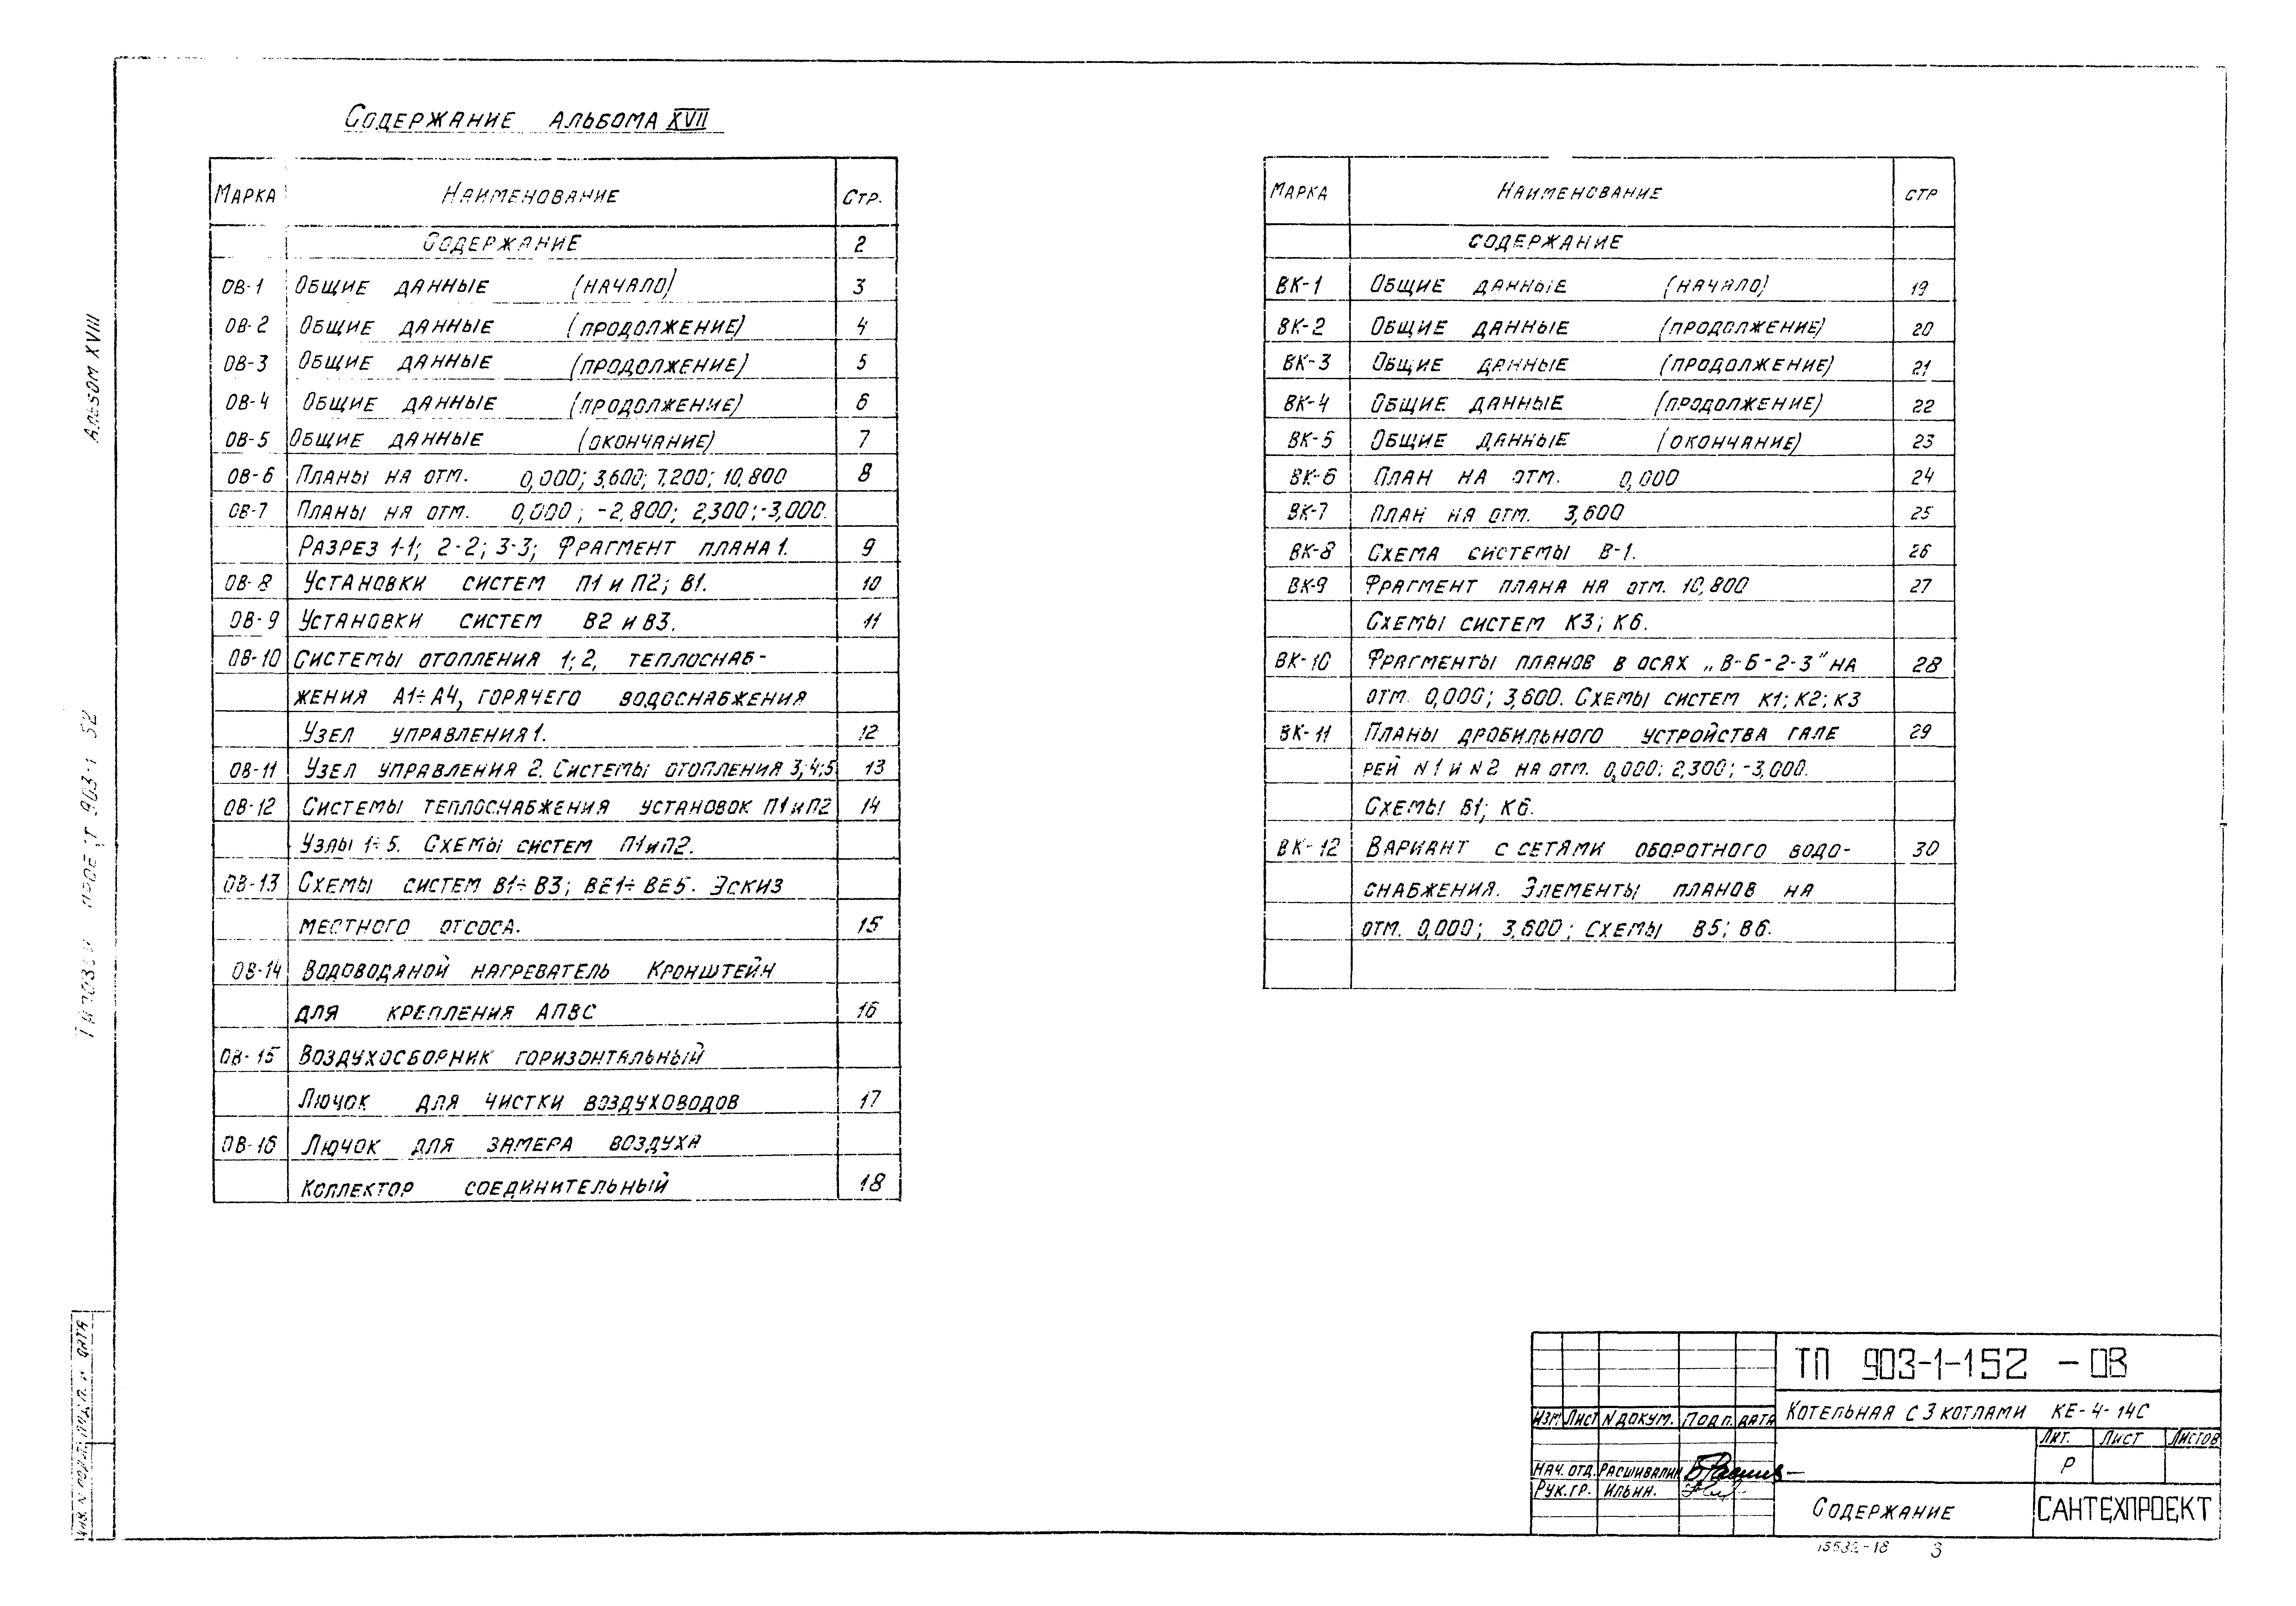 Содержание альбома XVII
Марка Наименование Стр.
Содержание 2
ОВ-1 Общие данные (начало) 3
ОВ-2 Общие данные (продолжение) 4
ОВ-3 Общие данные (продолжение) 5
ОВ-4 Общие данные (продолжение) 6
ОВ-5 Общие данные (окончание) 7
ОВ-6 Планы на отм. 0,000; 3,600; 7,200; 10,800 8
ОВ-7 Планы на отм. 0,000; -2,800; 2,300; -3,000.
Разрез 1-1; 2-2; 3-3; Фрагмент плана 1. 9
ОВ-8 Установки систем П1 и П2; В1. 10
ОВ-9 Установки систем В2 и В3. 11
ОВ-10 Системы отопления 1; 2, теплоснаб-
жения А1÷А4, горячего водоснабжения
Узел управления 1. 12
ОВ-11 Узел управления 2. Системы отопления 3; 4; 5 13
ОВ-12 Системы теплоснабжения установок П1 и П2 14
Узлы 1÷5. Схемы систем П1 и П2.
ОВ-13 Схемы систем В1÷В3; ВЕ1÷ВЕ5. Эскиз
местного отсоса. 15
ОВ-14 Водоводяной нагреватель Кронштейн
для крепления АПВС 16
ОВ-15 Воздухосборник горизонтальный
Лючок для чистки воздуховодов 17
ОВ-16 Лючок для замера воздуха
Коллектор соединительный 18
Марка Наименование стр
содержание
ВК-1 Общие данные (начало) 19
ВК-2 Общие данные (продолжение) 20
ВК-3 Общие данные (продолжение) 21
ВК-4 Общие данные (продолжение) 22
ВК-5 Общие данные (окончание) 23
ВК-6 План на отм. 0,000 24
ВК-7 План на отм. 3,600 25
ВК-8 Схема системы В-1. 26
ВК-9 Фрагмент плана на отм. 10,800 27
Схемы систем К3; К6.
ВК-10 Фрагменты планов в осях „В-Б-2-3" на 28
отм. 0,000; 3,600. Схемы систем К1; К2; К3
ВК-11 Планы дробильного устройства гале 29
рей N1 и N2 на отм. 0,000; 2,300; -3,000.
Схемы В1; К6.
ВК-12 Вариант с сетями оборотного водо- 30
снабжения. Элементы планов на
отм. 0,000; 3,600; схемы В5; В6.
Альбом XVIII
Типовой проект 903-1 52
Инв. N подл. Подп. и дата
ТП 903-1-152 -ОВ
Изм. Лист N докум. Подп. Дата
Котельная с 3 котлами КЕ-4-14С
Лит. Лист Листов
Р
Нач. отд. Расшивалин
Рук. гр. Ильин.
Содержание
САНТЕХПРОЕКТ
15532-18 3